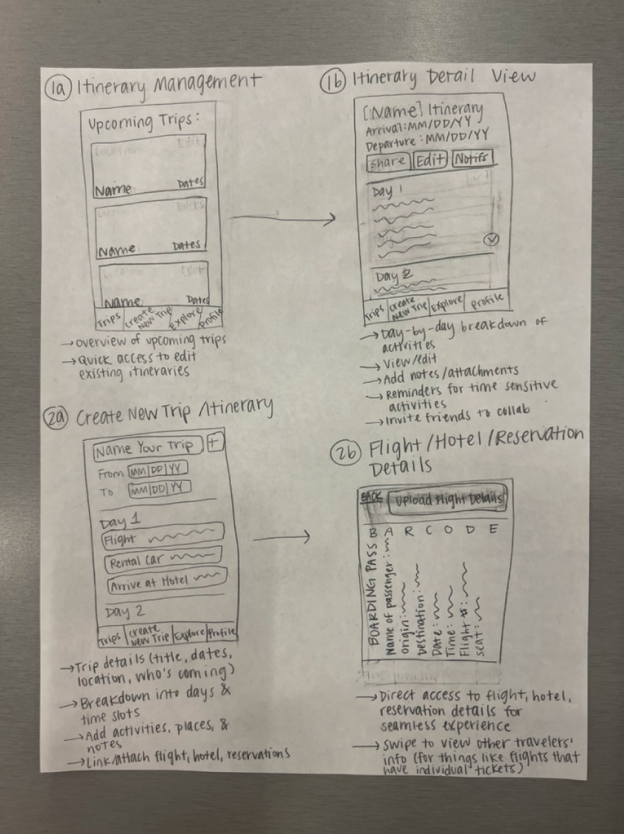 1a Itinerary Management
Upcoming Trips:
Edit
Name Dates
Name Dates
Name Dates
Trips Create New Trip Explore Profile
→ overview of upcoming trips
→ Quick access to edit
existing itineraries
1b Itinerary Detail View
[Name] Itinerary
Arrival: MM/DD/YY
Departure: MM/DD/YY
Share Edit Notifs
Day 1
Day 2
Trips Create New Trip Explore Profile
→ Day-by-day breakdown of
activities
→ View/edit
→ Add notes/attachments
→ Reminders for time sensitive
activities
→ Invite friends to collab
2a Create New Trip/Itinerary
Name Your Trip +
From MM/DD/YY
To MM/DD/YY
Day 1
Flight
Rental Car
Arrive at Hotel
Day 2
Trips Create New Trip Explore Profile
→ Trip details (title, dates,
location, who's coming)
→ Breakdown into days &
time slots
→ Add activities, places, &
notes
→ Link/attach flight, hotel, reservations
2b Flight/Hotel/Reservation
Details
BACK Upload Flight Details
BARCODE
BOARDING PASS
Name of passenger:
Origin:
Destination:
Date:
Time:
Flight #:
seat:
→ Direct access to flight, hotel,
reservation details for
seamless experience
→ Swipe to view other travelers'
info (for things like flights that
have individual tickets)